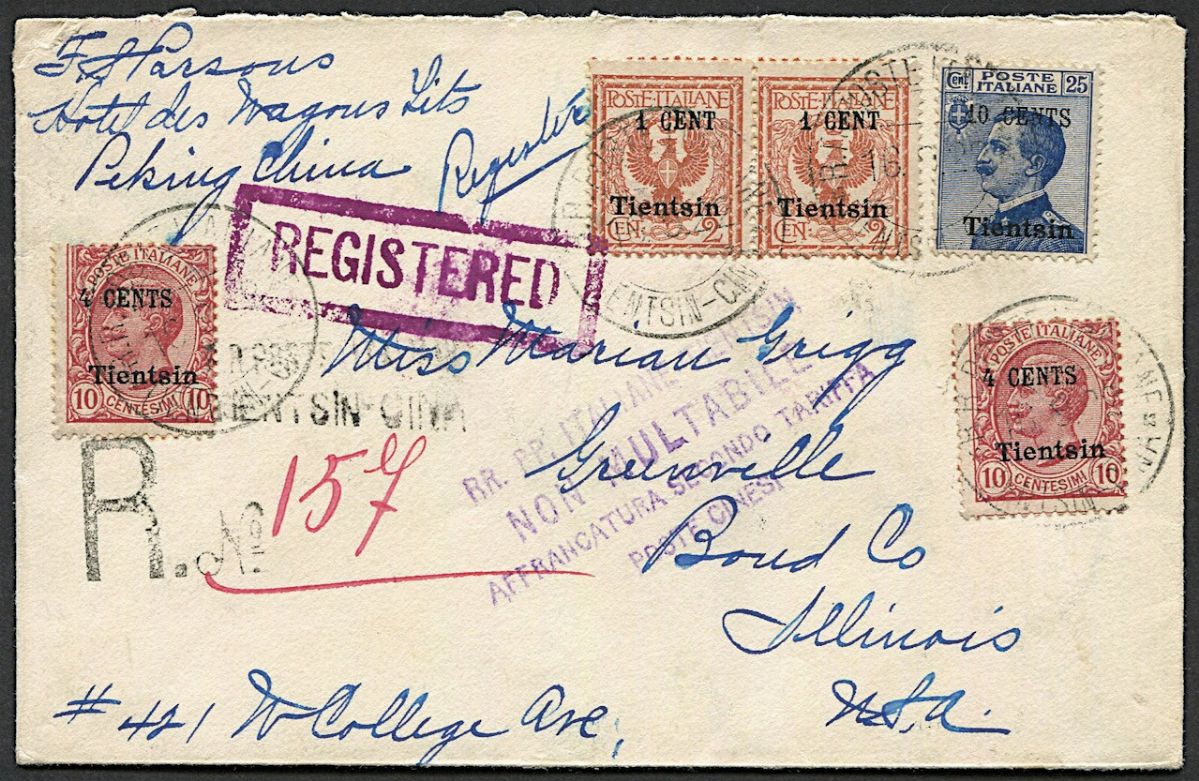 F. S. Parsons
Hotel des Wagons Lits
Peking China
Register
REGISTERED
POSTE·ITALIANE
1 CENT
Tientsin
CEN: 2
POSTE·ITALIANE
1 CENT
Tientsin
CEN: 2
Cent POSTE ITALIANE 25
10 CENTS
Tientsin
POSTE ITALIANE
4 CENTS
Tientsin
10 CENTESIMI 10
POSTE ITALIANE
4 CENTS
Tientsin
10 CENTESIMI 10
TIENTSIN-CINA
TIENTSIN-CINA
R. No 157
Miss Marian Grigg
Greenville
Bond Co
Illinois
U.S.A.
# 421 W College Ave,
RR. PP. ITALIANE TIENTSIN
NON MULTABILE
AFFRANCATURA SECONDO TARIFFA
POSTE CINESI